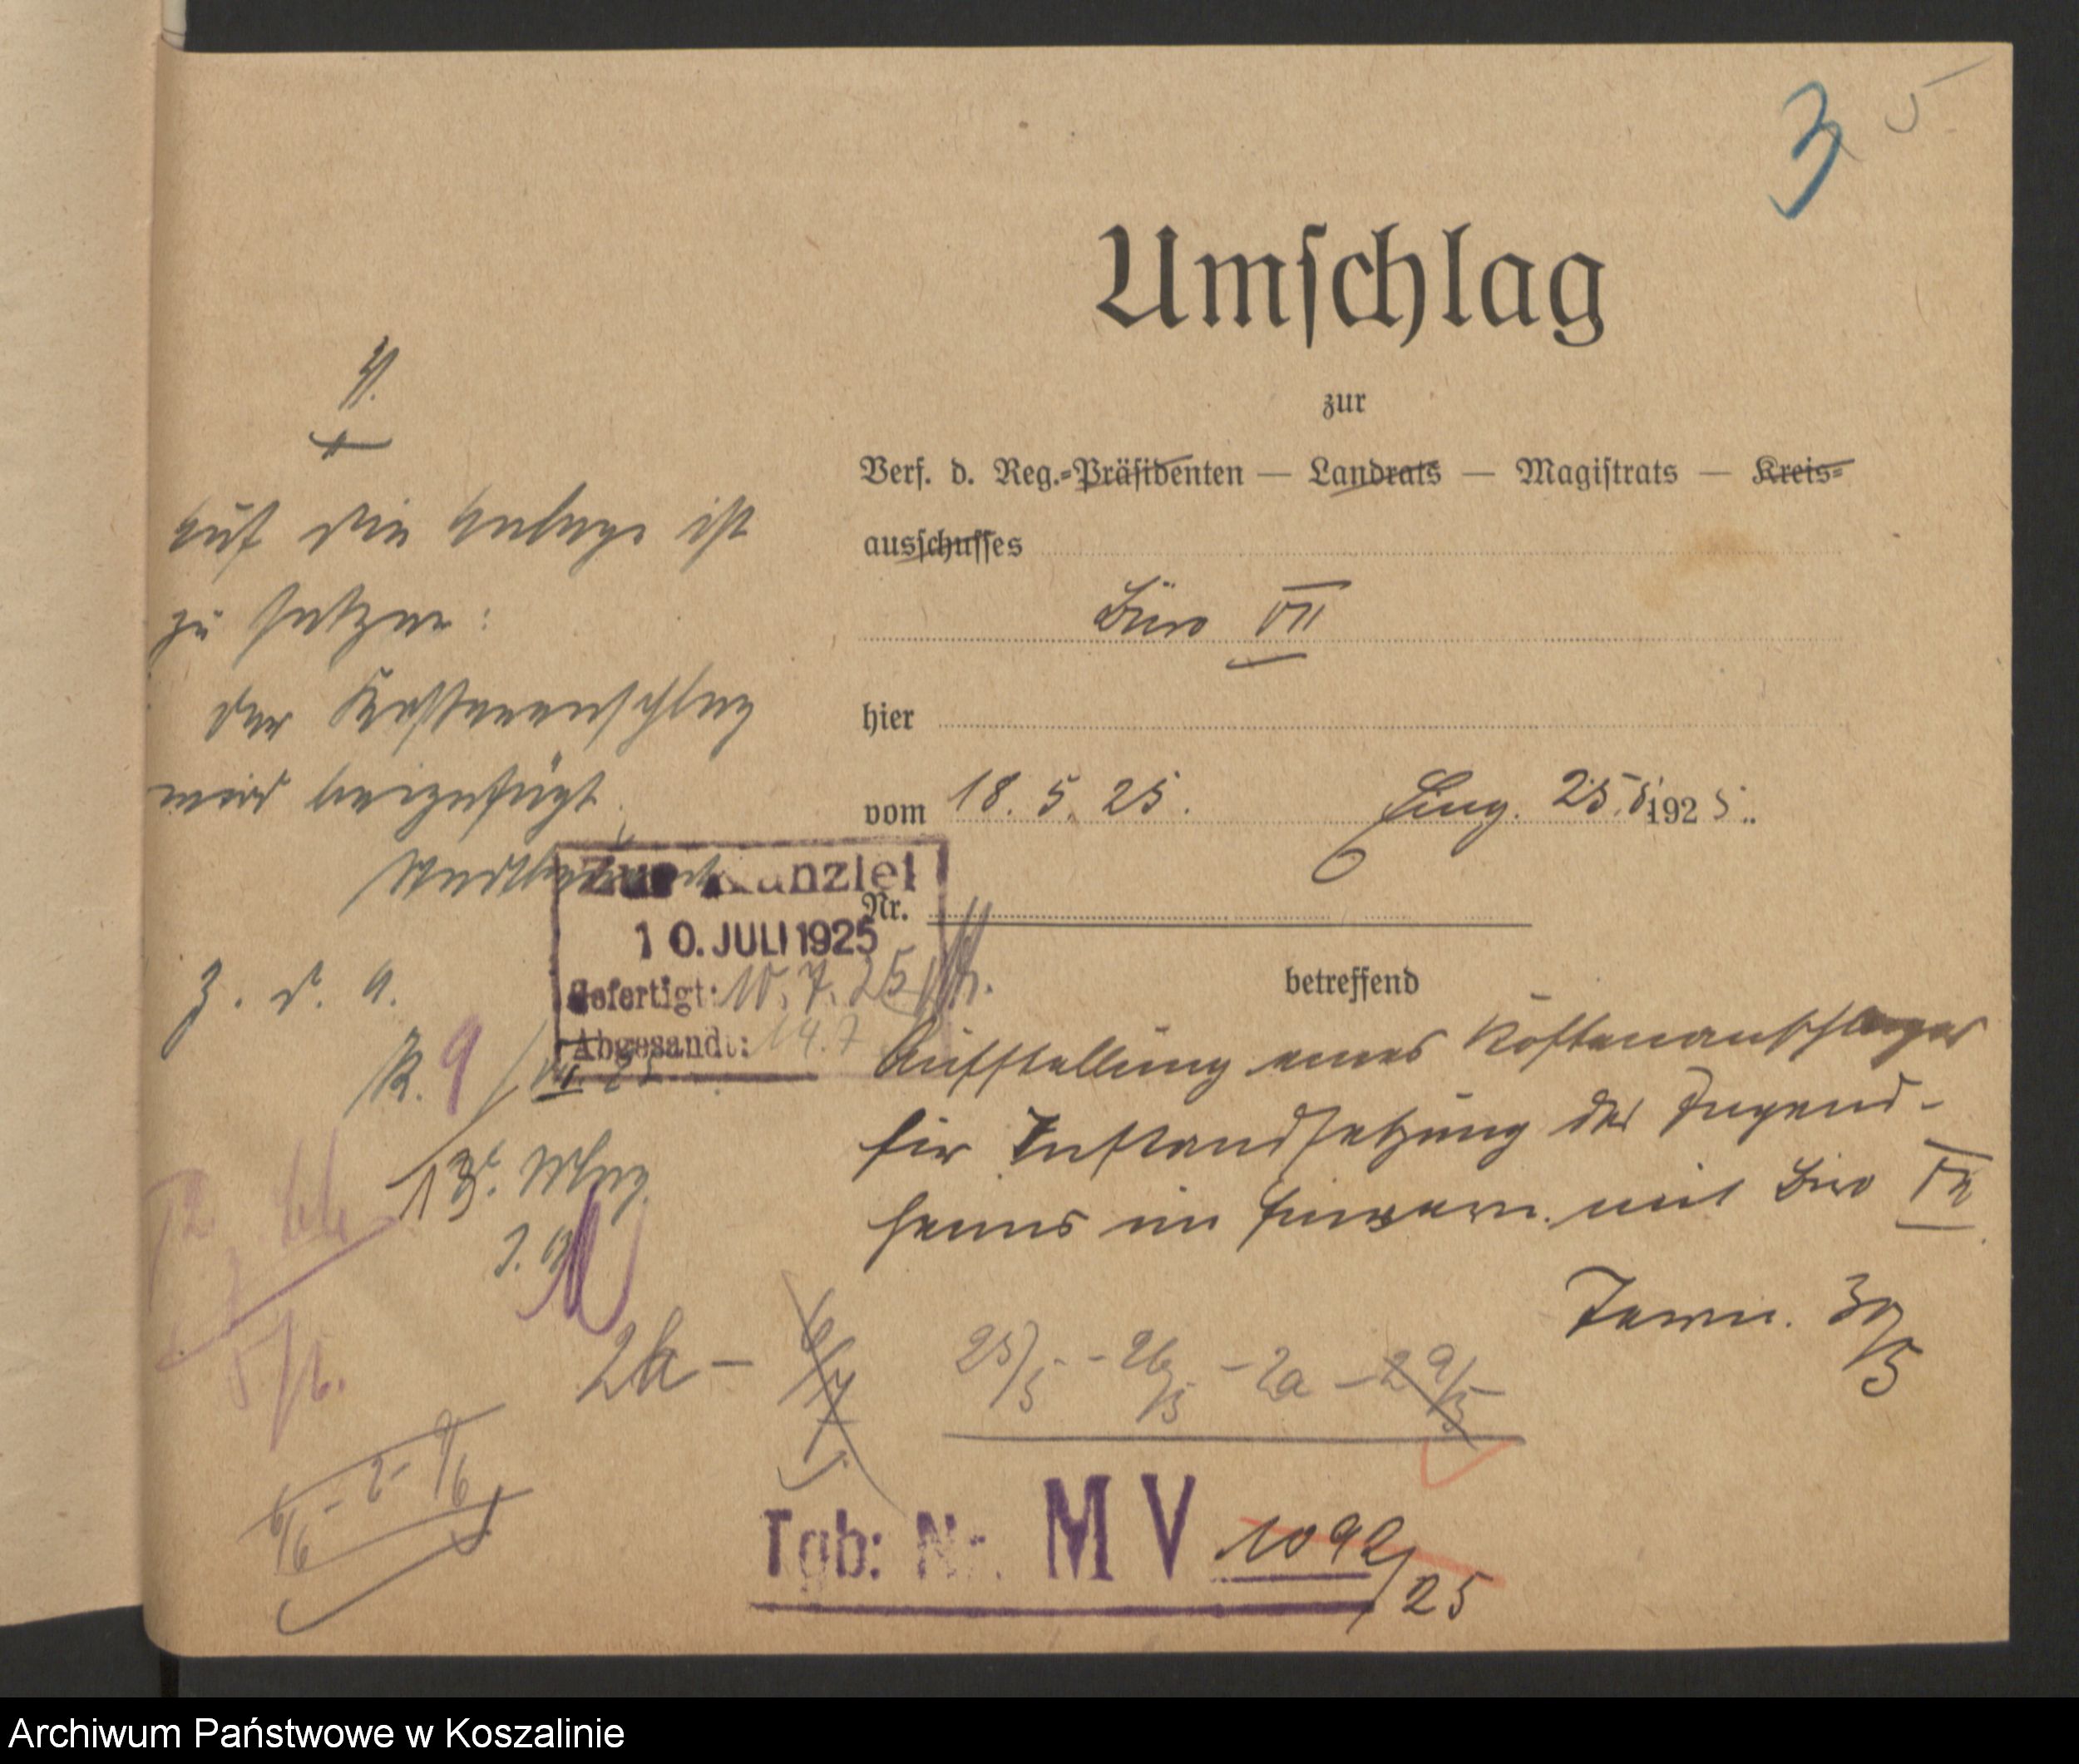 3 5
Umſchlag
zur
Verf. d. Reg.-Präſidenten — Landrats — Magiſtrats — Kreis-
ausſchuſſes
Büro VII
hier
vom 18. 5. 25. Eing. 25.5. 1925..
Nr.
betreffend
Aufstellung eines Kostenanschlages
für Instandsetzung des Jugend-
heims im Einvern. mit Büro
Term. 30/5
25/5 - 26/5 - 2a - 29/5
Tgb: Nr. M V 1092/25
auf die Anlage ist
zu setzen:
der Kostenanschlag
wird beigefügt.
Zur Kanzlei
10. JULI 1925
Gefertigt: 10.7.25
Abgesandt: 14.7
z. d. A.
K. 9/VII. 25
J. A.
5/6.
6/6 - 2 - 9/6
Archiwum Państwowe w Koszalinie